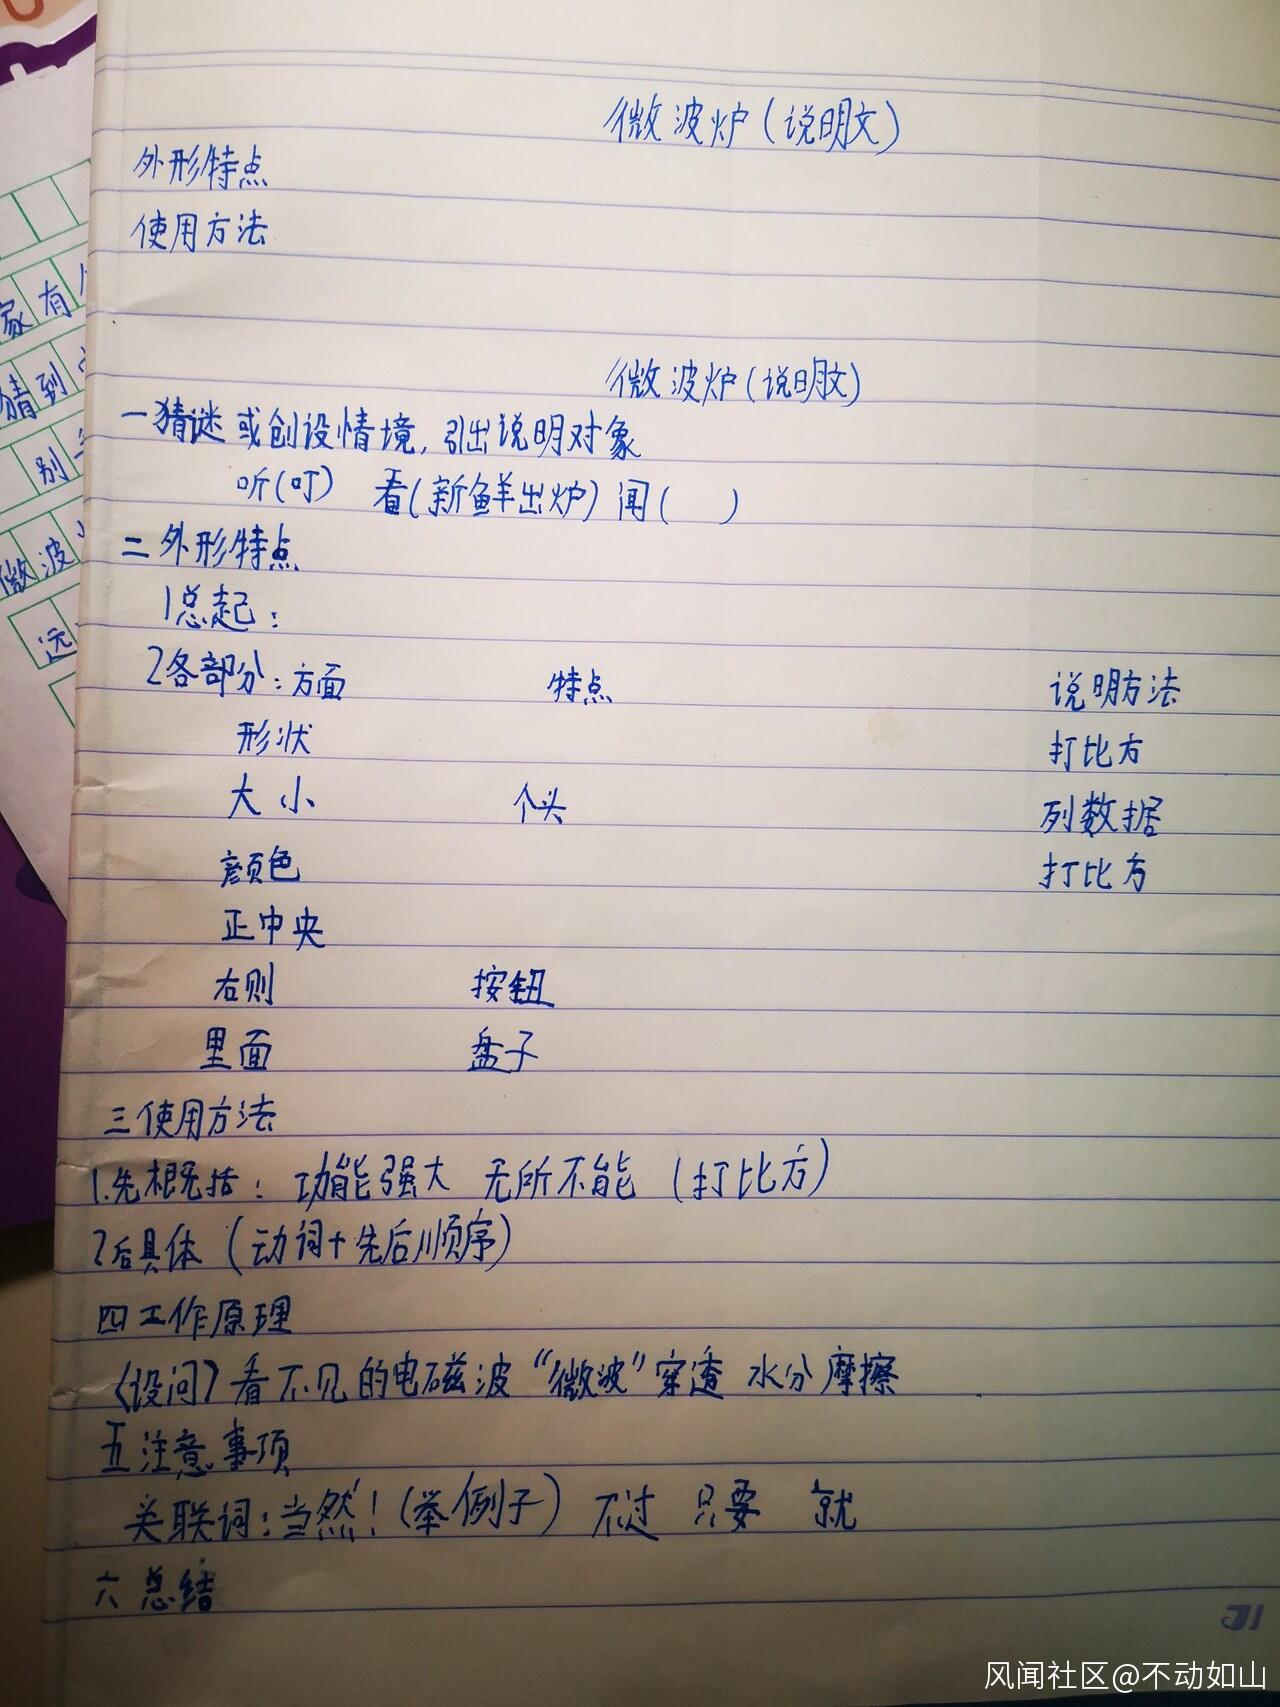 微波炉(说明文)
外形特点
使用方法
微波炉(说明文)
一猜谜或创设情境,引出说明对象
听(叮) 看(新鲜出炉) 闻( )
二外形特点
1总起:
2各部分:方面 特点 说明方法
形状 打比方
大小 个头 列数据
颜色 打比方
正中央
右则 按钮
里面 盘子
三使用方法
1.先概括: 功能强大 无所不能 (打比方)
2后具体(动词+先后顺序)
四工作原理
(设问)看不见的电磁波“微波”穿透 水分摩擦
五注意事项
关联词:当然!(举例子) 不过 只要 就
六 总结
家有
猜到
别
微波
远
风闻社区@不动如山